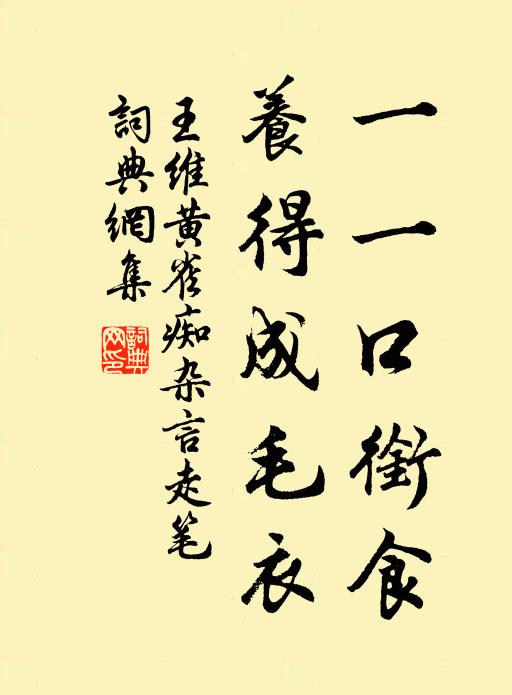 一一口銜食
養得成毛衣
王維黄雀痴杂言走笔
詞典網集
詞典網印